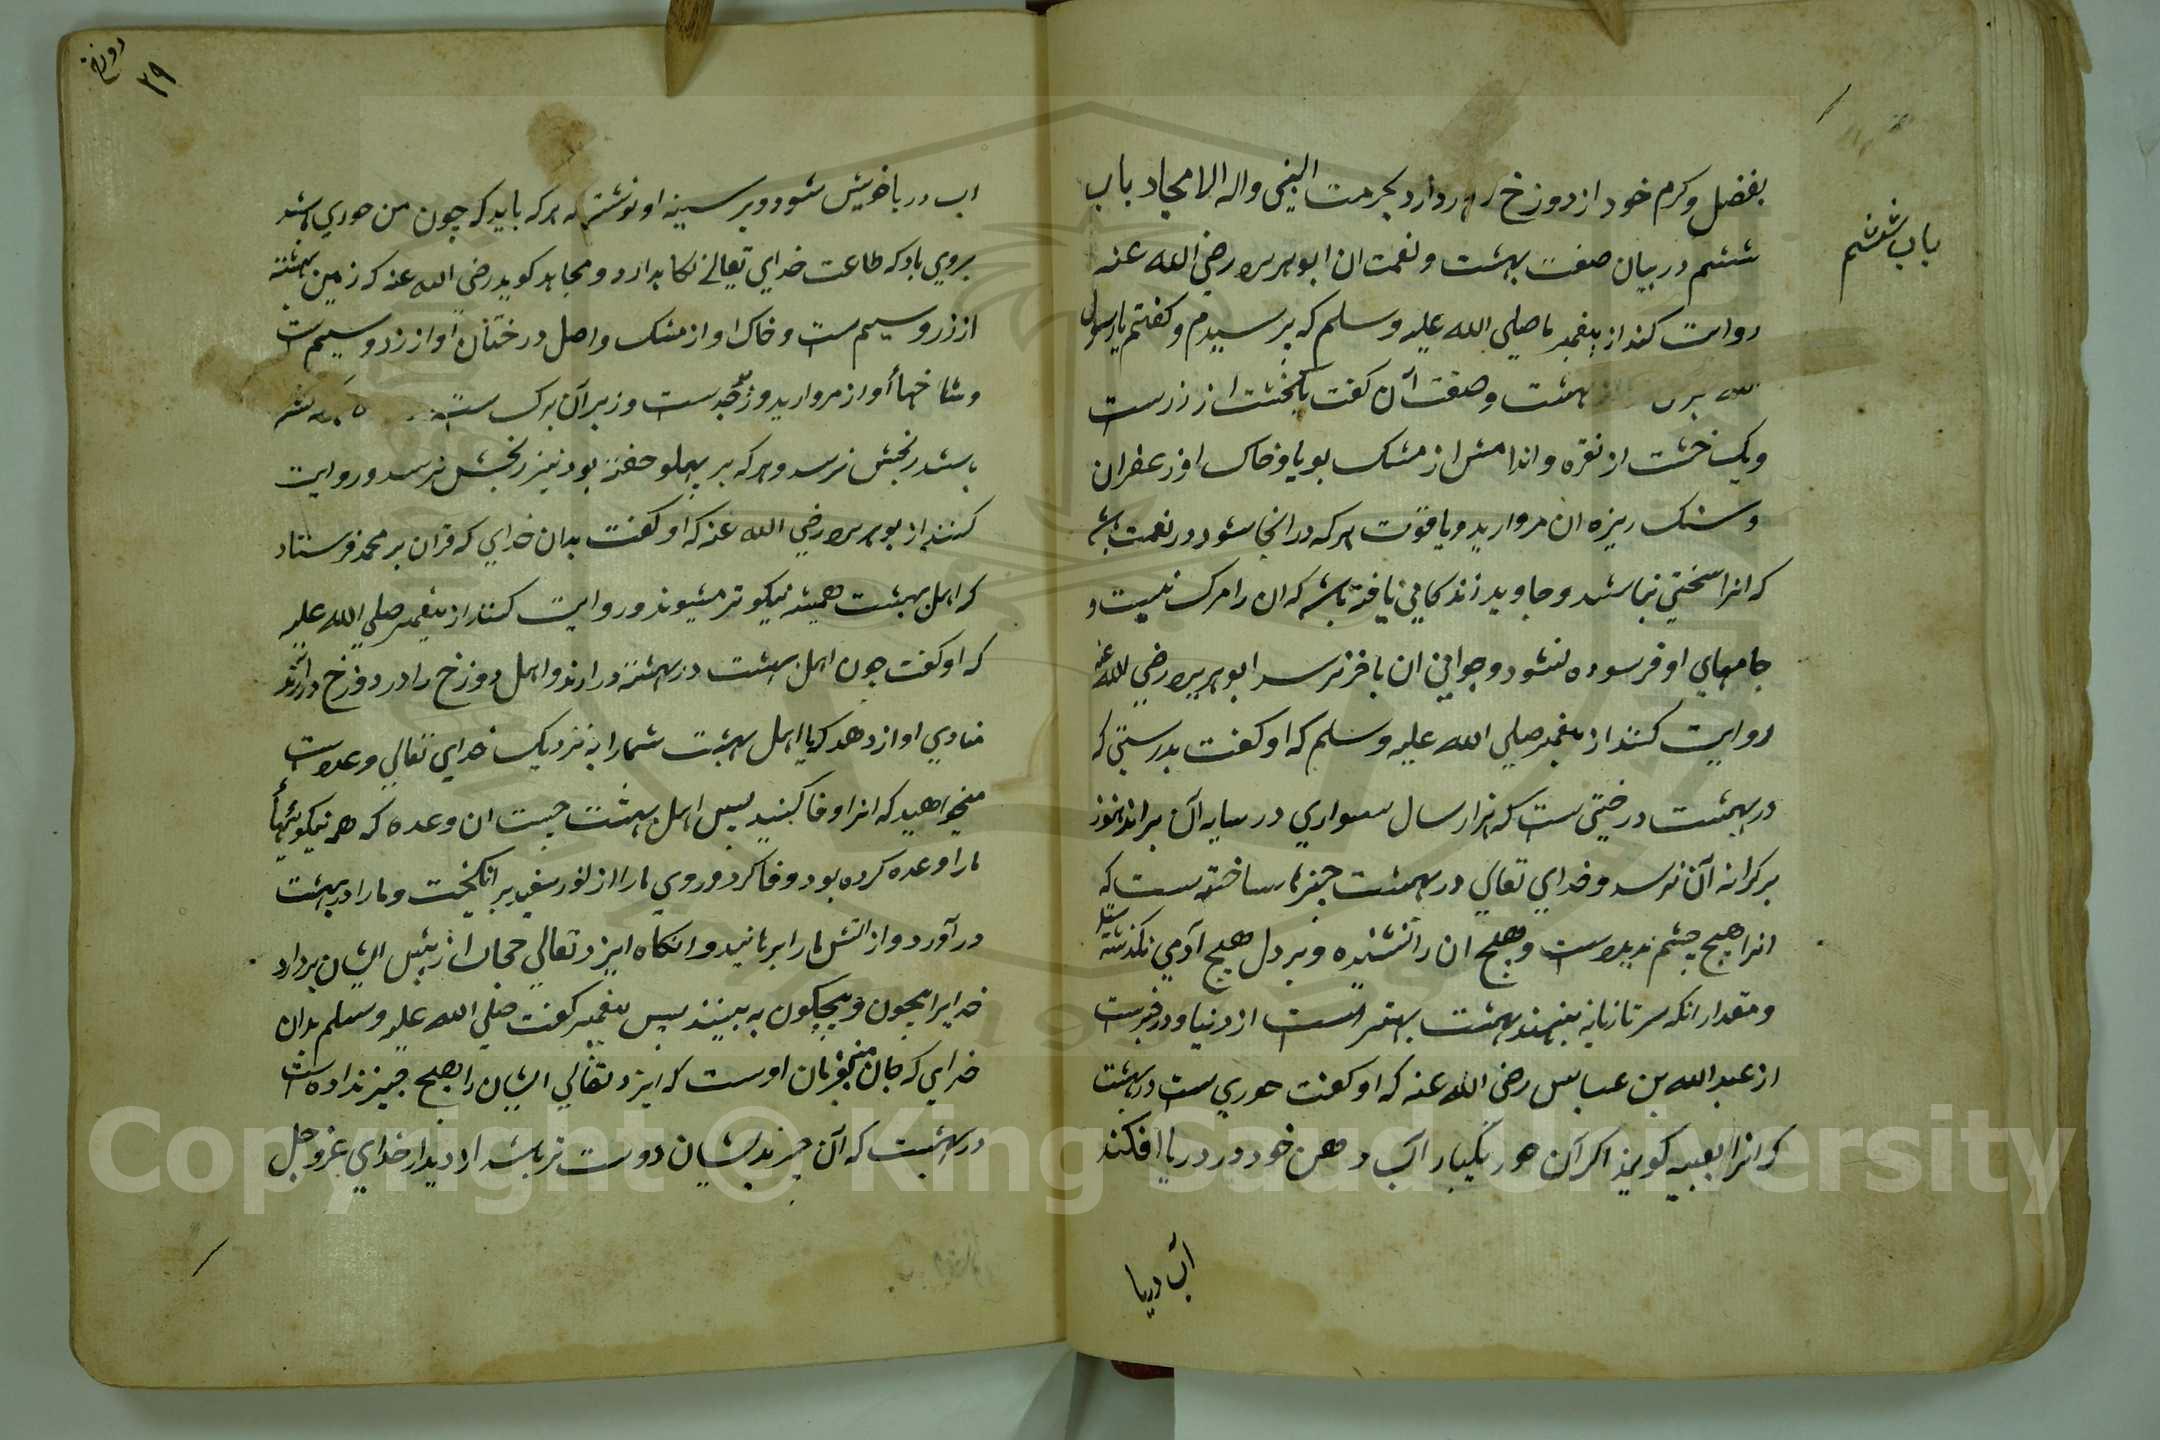 باب ششم
بفضل و کرم خود از دوزخ دارد بحرمت النبی واله الامجاد باب
ششم در بیان صفت بهشت و نعمت ان ابوهریره رضی الله عنه
روایت کند از پیغمبر ما صلی الله علیه وسلم که پرسیدم و کفتم یا رسول
الله بهشت و صفت آن کفت یکخشت از زرست
ویک خشت از نقره و اندامش از مشک بویا و خاک او زعفران
و سنک ریزه ان مروارید و یاقوت هرکه در انجا شود در نعمت باشد
که انرا سختی نباشد و جاوید زندکانی یافته باشد که ان را مرک نیست و
جامهای او فرسوده نشود و جوانی ان باخر نرسد ابوهریره رضی الله عنه
روایت کنند از پیغمبر صلی الله علیه وسلم که او کفت بدرستی که
در بهشت درختی ست که هزار سال سواری در سایه آن براند هنوز
بر کرانه آن نرسد و خدای تعالی در بهشت چیزها ساخته ست که
انرا هیچ چشم ندیده است و هیچ ان را نشنیده و بر دل هیچ آدمی نکذشته
و مقدار انکه سر تازیانه بنهند بهشت بهتر است از دنیا و در خبرست
از عبد الله بن عباس رضی الله عنه که او کفت حوری ست در بهشت
که انرا لعبیه کویند اکر آن حور یکبار آب دهن خود در دریا افکند
آب دریا
دوزخ
۳۹
اب دریا خویش شود و بر سینه او نوشته که هرکه باید که چون من حوری باشد
بروی باد که طاعت خدای تعالی نکاهدارد و مجاهد کوید رضی الله عنه که زمین بهشت
از زر و سیم ست و خاک او از مشک و اصل درختان او از زر و سیم ست
و شاخها او از مروارید و زبرجدست و زیر آن برک ست
باشد رنجش نرسد و هرکه بر پهلو خفته بود نیز رنجش نرسد و روایت
کنند از بوهریره رضی الله عنه که او کفت بدان خدای که قران بر محمد فرستاد
که اهل بهشت همیشه نیکوتر میشوند و روایت کنند از پیغمبر صلی الله علیه
که او کفت چون اهل بهشت در بهشت در ارند و اهل دوزخ را در دوزخ در ارند
منادی اواز دهد که یا اهل بهشت شما را به نزدیک خدای تعالی وعده ست
میخواهید که انرا وفا کنید پس اهل بهشت چیست ان وعده که همه نیکوئیها
ما را وعده کرده بود وفا کرد و روی ما را از نور سفید بر انکیخت و ما را در بهشت
در آورد و از اتش ما را برهانید و انکاه ایزد تعالی حجاب از پیش ایشان بردارد
خدایرا بیچون و بیچکون به بینند پس پیغمبر کفت صلی الله علیه وسلم بدان
خدای که جان من بفرمان اوست که ایزد تعالی ایشان را هیچ چیز نداده است
در بهشت که آن چیز بدیشان دوست تر باشد از دیدار خدای عز و جل